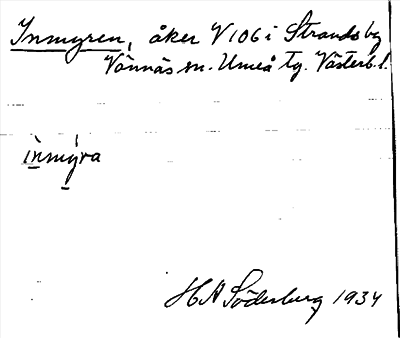 Inmyren, åker V 106 i Strandsby
Vännäs sn. Umeå tg. Västerb. l.
ìnmýra
H A Söderberg 1934